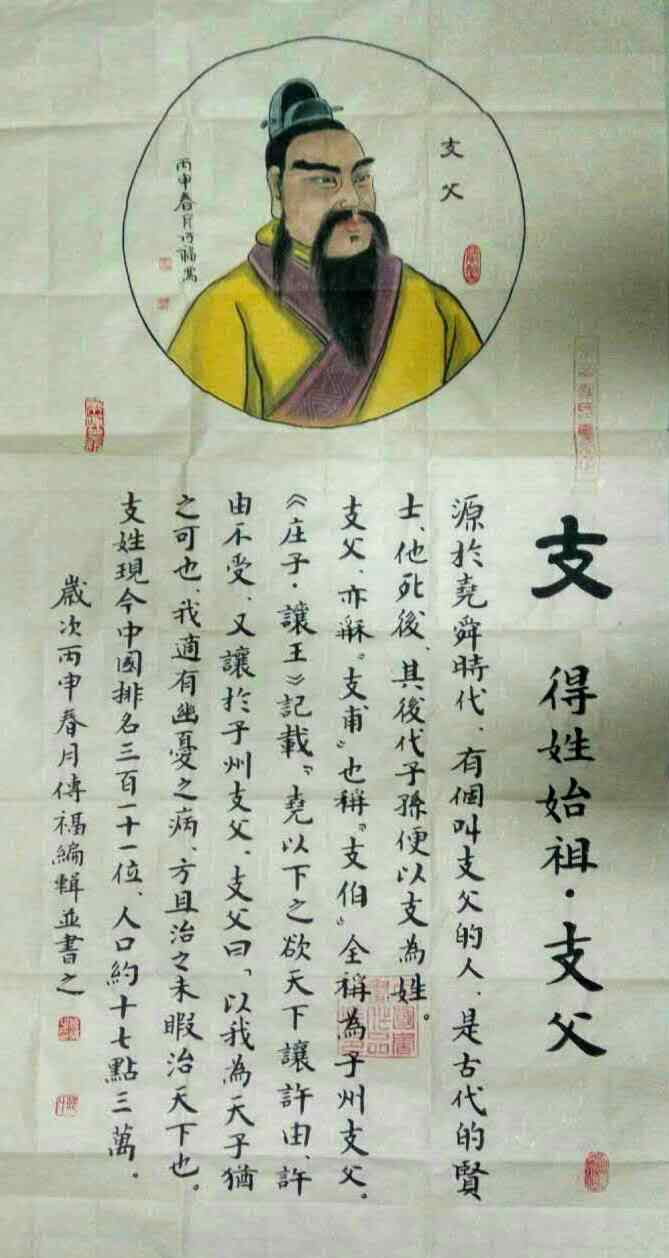 支父
丙申春月
支 得姓始祖·支父
源於堯舜時代、有個叫支父的人、是古代的賢
士、他死後、其後代子孫便以支為姓。
支父、亦稱“支甫”也稱“支伯”全稱為子州支父。
《庄子·讓王》記載“堯以下之欲天下讓許由、許
由不受、又讓於子州支父、支父曰、以我為天子猶
之可也、我適有幽憂之病、方且治之未暇治天下也。
支姓現今中國排名三百一十一位、人口約十七點三萬。
歲次丙申春月傳福編輯並書之